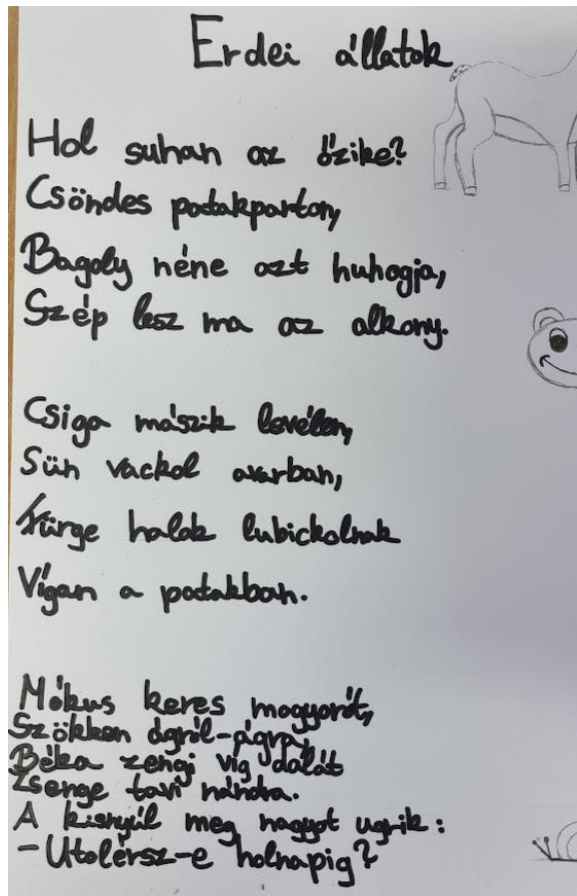 Erdei állatok
Hol suhan az őzike?
Csöndes patakparton,
Bagoly néne azt huhogja,
Szép lesz ma az alkony.
Csiga mászik levélen,
Sün vackol avarban,
Fürge halak lubickolnak
Vígan a patakban.
Mókus keres mogyorót,
Szökken ágról-ágra,
Béka zengi víg dalát
Zsenge tavi nádra.
A kisnyúl meg nagyot ugrik:
- Utolérsz-e holnapig?